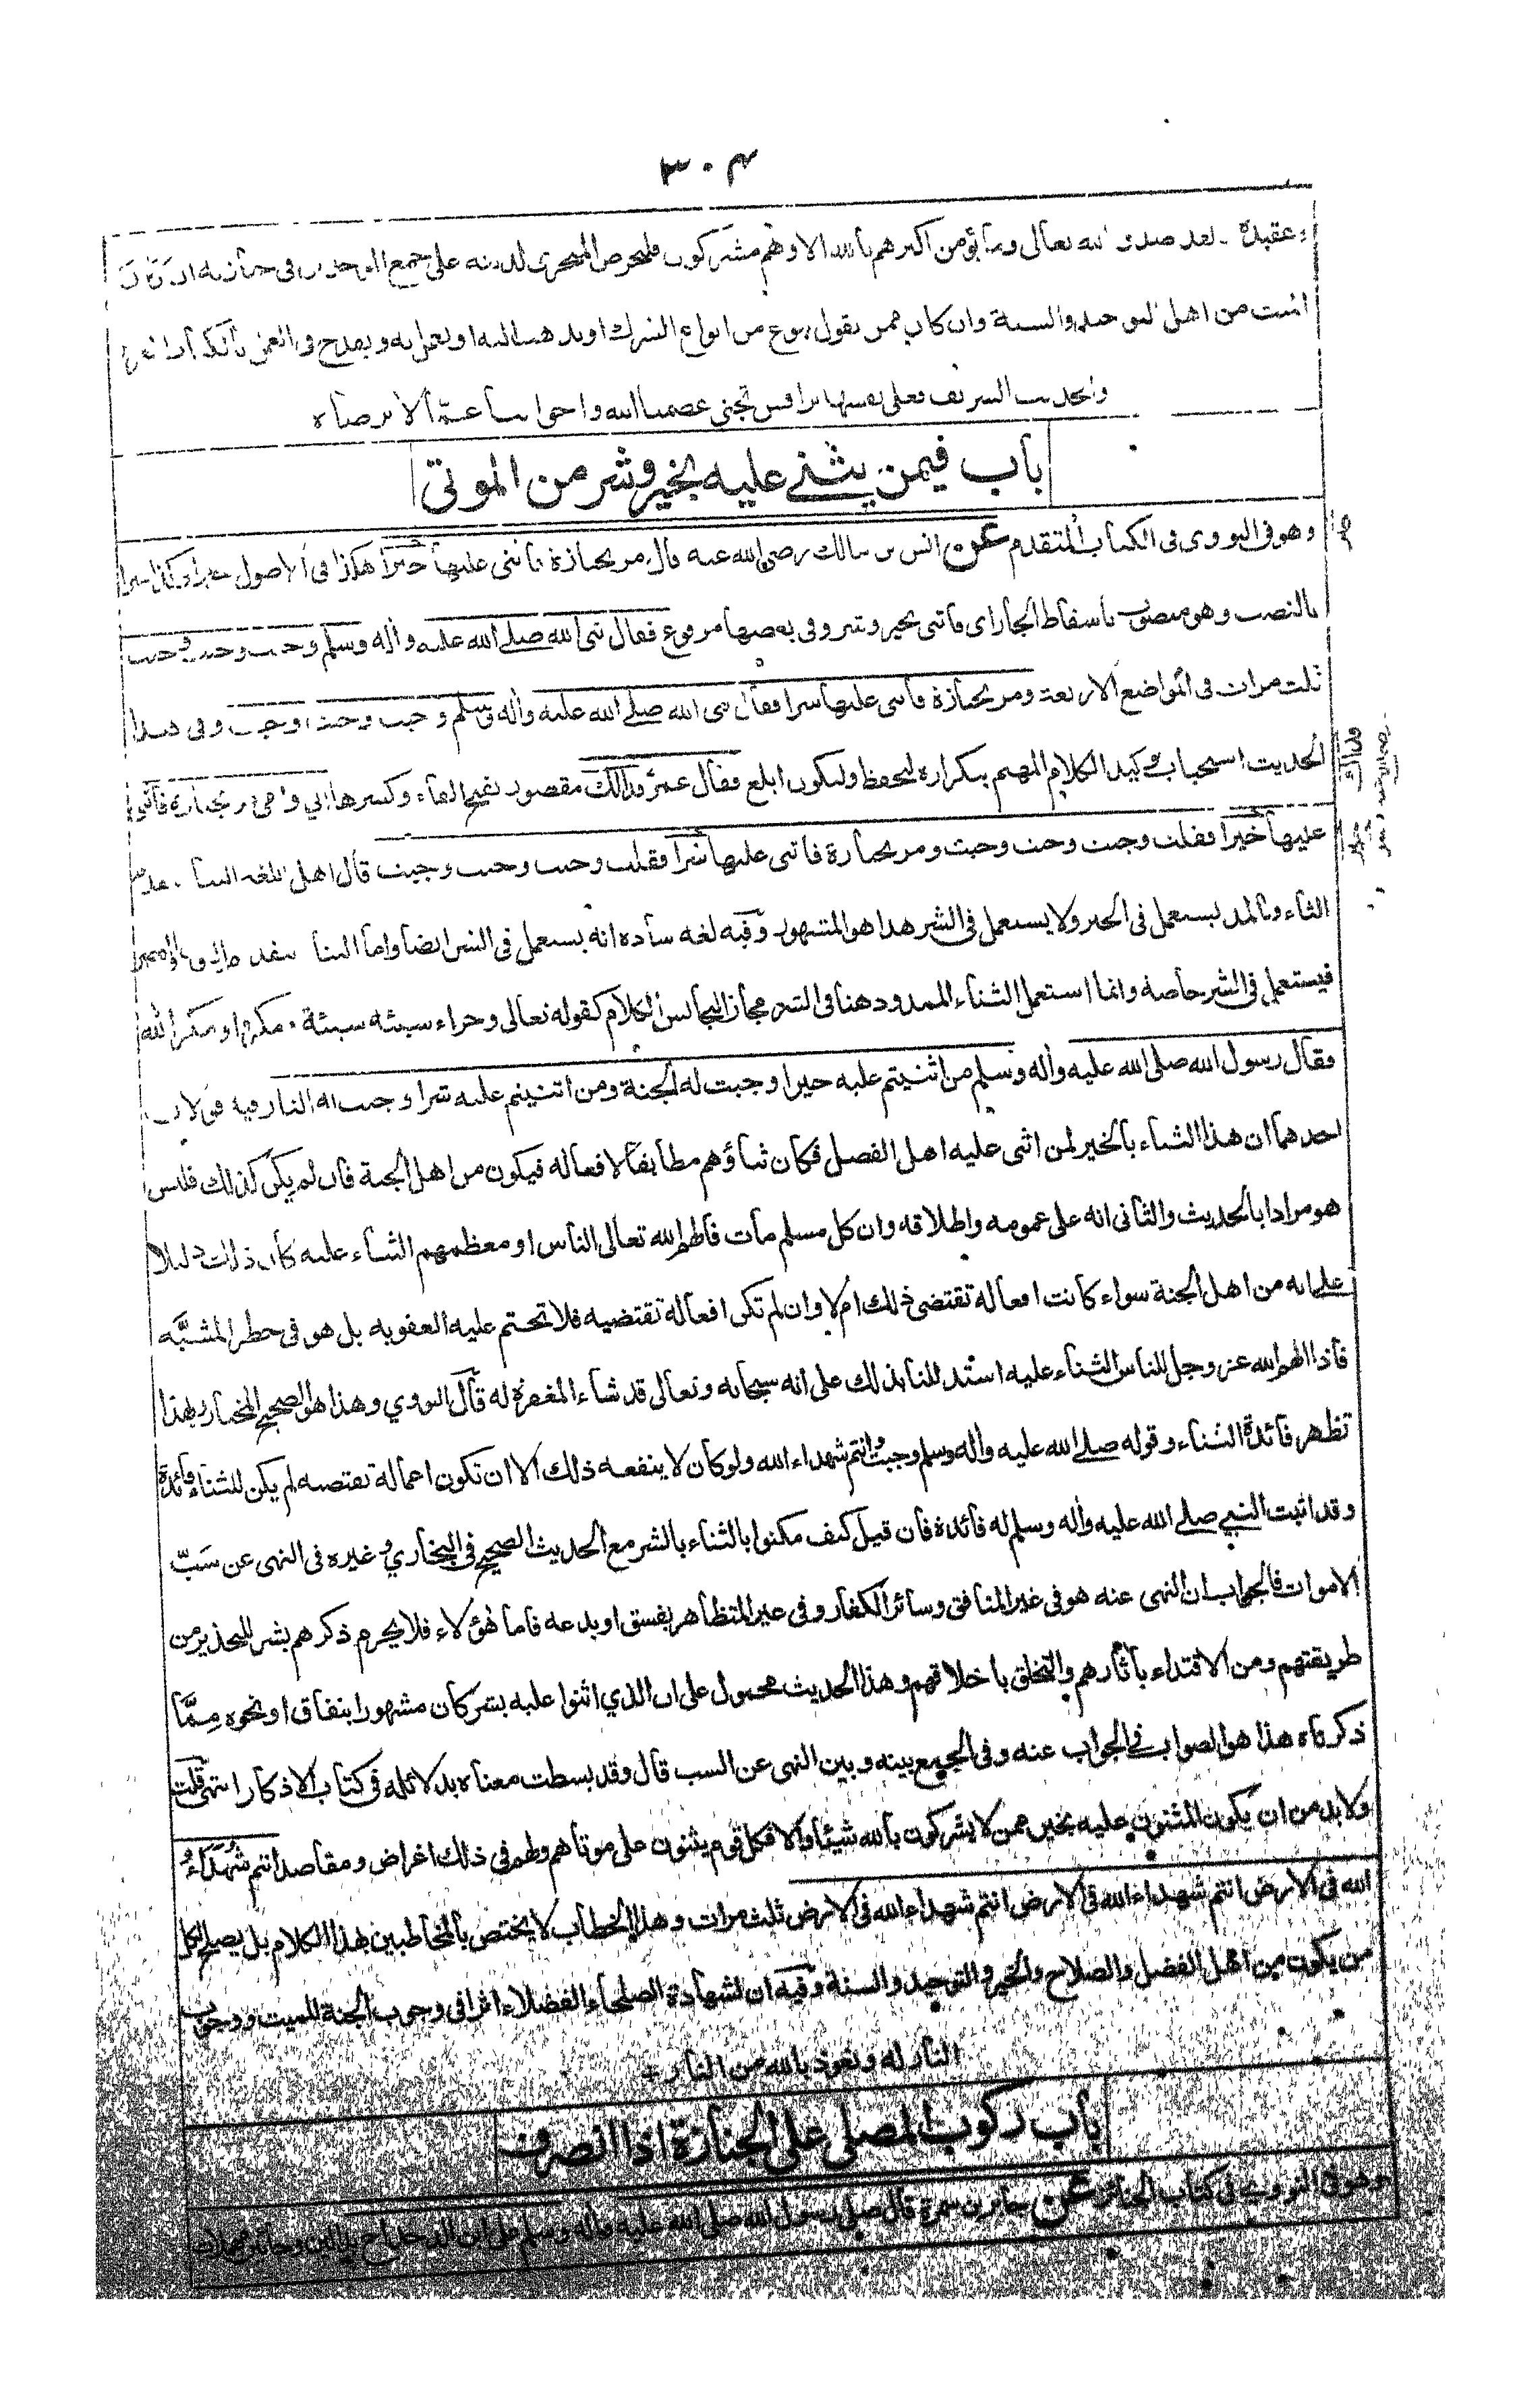 ٣٠٤
عقيدة تعالى وما يؤمن اكثرهم بالله الا وهم مشركون على جمع في جنازته
من اهل التوحيد والسنة وان كان ممن يقول بنوع من انواع الشرك او
فعلى نفسها براقش تجني عصمنا الله واخواننا عما لا يرضاه
باب فيمن يثنى عليه بخير وشر من الموتى
وهو في النووي في الكتاب المتقدم عن انس بن مالك رضي الله عنه قال مر بجنازة فاثني عليها خيرا هكذا في الاصول خيرا وكذا شرا
بالنصب وهو منصوب باسقاط الجار اي فاثني بخير وشر وفي بعضها مرفوع فقال نبي الله صلى الله عليه وأله وسلم وجبت وجبت وجبت
ثلث مرات في المواضع الاربعة ومر بجنازة فاثني عليها شرا فقال نبي الله صلى الله عليه وأله وسلم وجبت وجبت وجبت وفي هذا
الحديث استحباب توكيد الكلام المهم بتكراره ليحفظ وليكون ابلغ فقال عمر فدالك مقصور بفتح الفاء وكسرها ابي وامي مر بجنازة فاثني
عليها خيرا فقلت وجبت وجبت وجبت ومر بجنازة فاثني عليها شرا فقلت وجبت وجبت وجبت قال اهل اللغة الثناء بتقديم
الثاء وبالمد يستعمل في الخير ولا يستعمل في الشر هذا هو المشهور وفيه لغة شاذة انه يستعمل في الشر ايضا واما النثا
فيستعمل في الشر خاصة وانما استعمل الثناء الممدود هنا في الشر مجازا لتجانس الكلام كقوله تعالى وجزاء سيئة سيئة ومكروا ومكر الله
فقال رسول الله صلى الله عليه وأله وسلم من اثنيتم عليه خيرا وجبت له الجنة ومن اثنيتم عليه شرا وجبت له النار فيه قولان
احدهما ان هذا الثناء بالخير لمن اثنى عليه اهل الفضل فكان ثناؤهم مطابقا لافعاله فيكون من اهل الجنة فان لم يكن كذلك فليس
هو مرادا بالحديث والثاني انه على عمومه واطلاقه وان كل مسلم مات فالهم الله تعالى الناس او معظمهم الثناء عليه كان ذلك دليلا
على انه من اهل الجنة سواء كانت افعاله تقتضي ذلك ام لا وان لم تكن افعاله تقتضيه فلا تحتم عليه العقوبة بل هو في خطر المشيّة
فاذا الهم الله عز وجل للناس الثناء عليه استدللنا بذلك على انه سبحانه وتعالى قد شاء المغفرة له قال النووي وهذا هو الصحيح المختار وبهذا
تظهر فائدة الثناء وقوله صلى الله عليه وأله وسلم وجبت وانتم شهداء الله ولو كان لا ينفعه ذلك الا ان تكون اعماله تقتضيه لم يكن للثناء فائدة
وقد اثبت النبي صلى الله عليه وأله وسلم له فائدة فان قيل كيف مكنوا بالثناء بالشر مع الحديث الصحيح في البخاري وغيره في النهي عن سَبّ
الاموات فالجواب ان النهي عنه هو في غير المنافق وسائر الكفار وفي غير المتظاهر بفسق او بدعة فاما هؤلاء فلا يحرم ذكرهم بشر للتحذير من
طريقتهم ومن الاقتداء بأثارهم والتخلق باخلاقهم وهذا الحديث محمول على ان الذي اثنوا عليه بشر كان مشهورا بنفاق او نحوه مِمَّا
ذكرناه هذا هو الصواب في الجواب عنه وفي الجمع بينه وبين النهي عن السب قال وقد بسطت معناه بدلائله في كتاب الاذكار انتهى قلت
ولا بد من ان يكون المثنون عليه بخير ممن لا يشركون بالله شيئا والا فكل قوم يثنون على موتاهم ولهم في ذلك اغراض ومقاصد انتم شُهَدَاءُ
الله في الارض انتم شهداء الله في الارض انتم شهداء الله في الارض ثلث مرات وهذا الخطاب لا يختص بالمخاطبين بهذا الكلام بل يصلح لكل
من يكون من اهل الفضل والصلاح والخير والتوحيد والسنة وفيه ان لشهادة الصلحاء الفضلاء اثرا في وجوب الجنة للميت ووجوب
النار له ونعوذ بالله من النار
باب ركوب المصلي على الجنازة اذا انصرف
وهو في النووي في كتاب الجنائز عن جابر بن سمرة قال صلى رسول الله صلى الله عليه وأله وسلم على ابن الدحداح بدالين وحائين مهملات